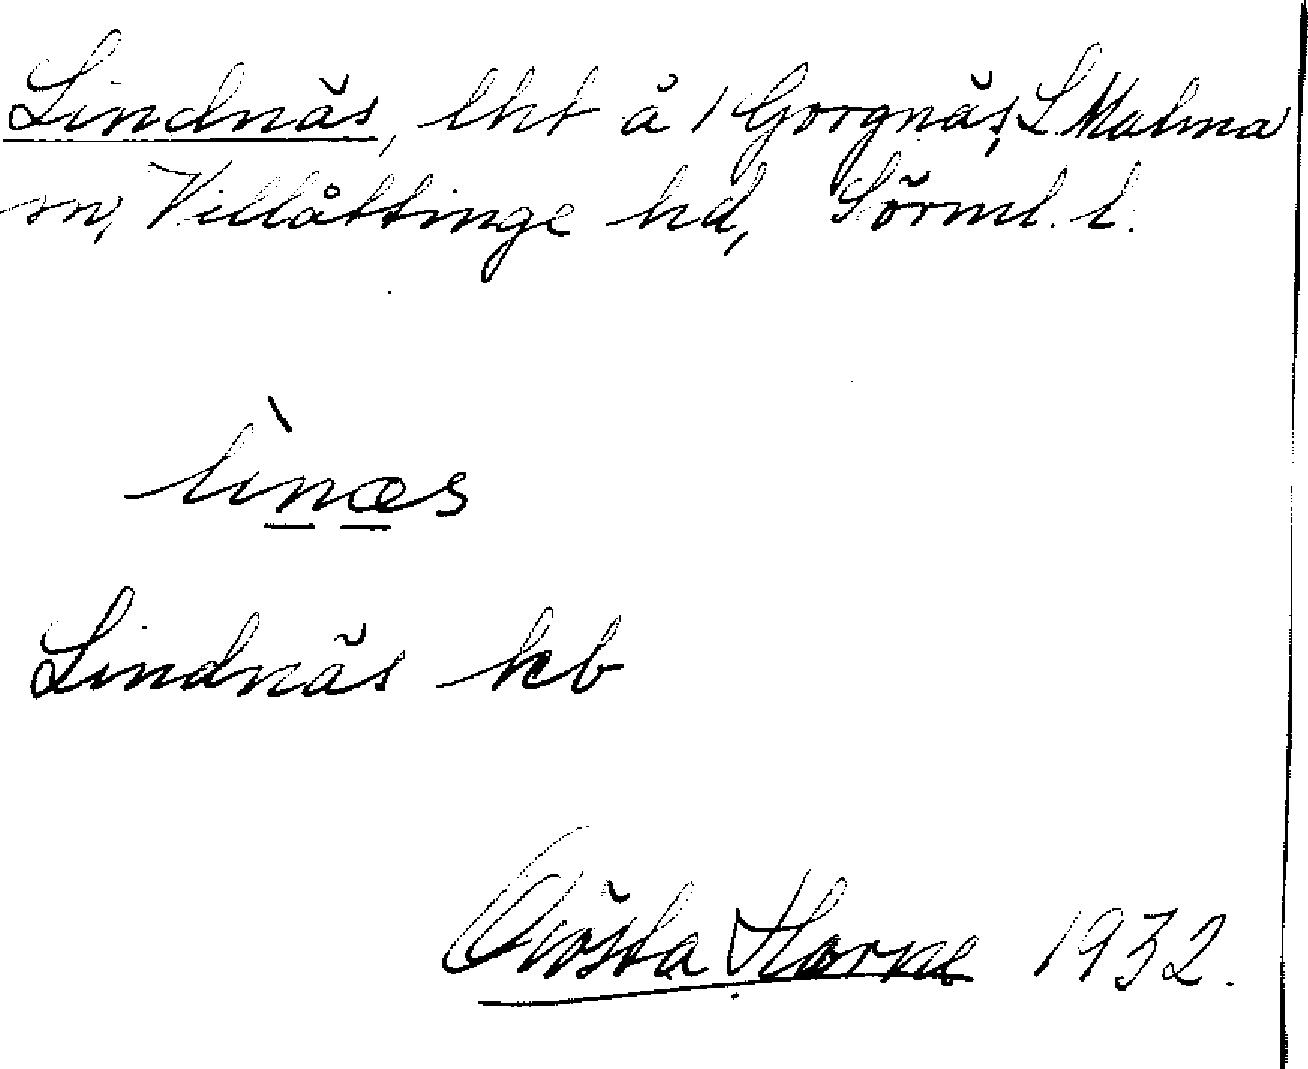 Lindnäs, lht å 1 Gorgnäs, L Malma
sn, Villåttinge hd, Sörml. l.
lìnæs
Lindnäs kb
Gösta Horne 1932.